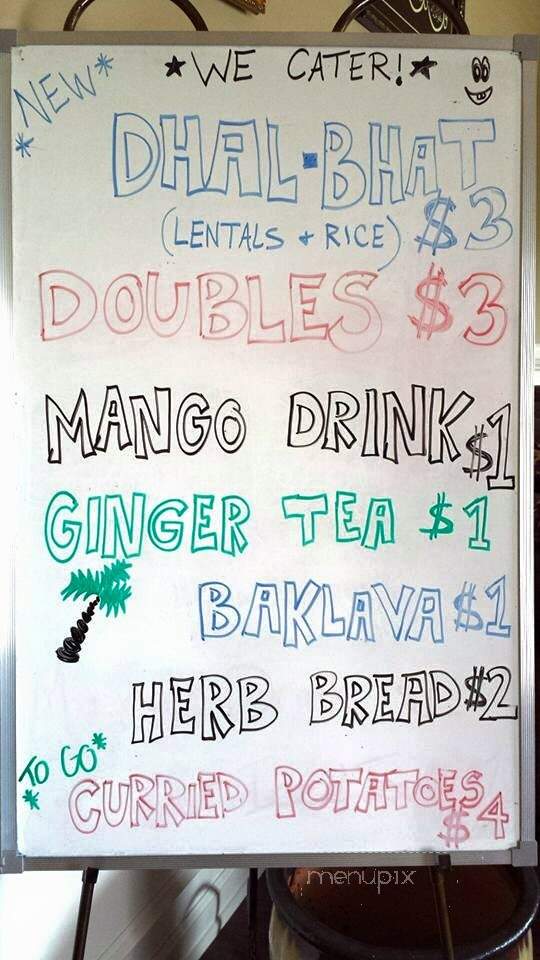 *NEW*
★WE CATER!★
DHAL-BHAT
(LENTALS + RICE) $3
DOUBLES $3
MANGO DRINK $1
GINGER TEA $1
BAKLAVA $1
HERB BREAD $2
*TO GO*
CURRIED POTATOES $4
menupix